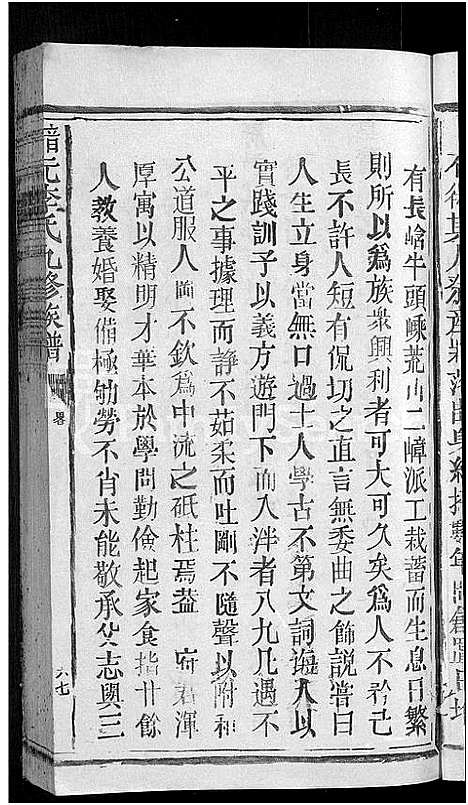 有長嶺牛頭嵊荒山二嶂派工栽蓄而生息日繁
則所以爲族衆興利者可大可久矣爲人不矜己
長不許人短有侃切之直言無委曲之飾說嘗曰
人生立身當無口過士人學古不第文詞誨人以
實踐訓子以義方遊門下而入泮者八九凡遇不
平之事據理而諍不茹柔而吐剛不隨聲以附和
公道服人 不欽爲中流之砥柱焉蓋 府君渾
厚寓以精明才華本於學問勤儉起家食指廿餘
人教養婚娶備極劬勞不肖未能敬承父志與三
氏九修族譜
畧
六七